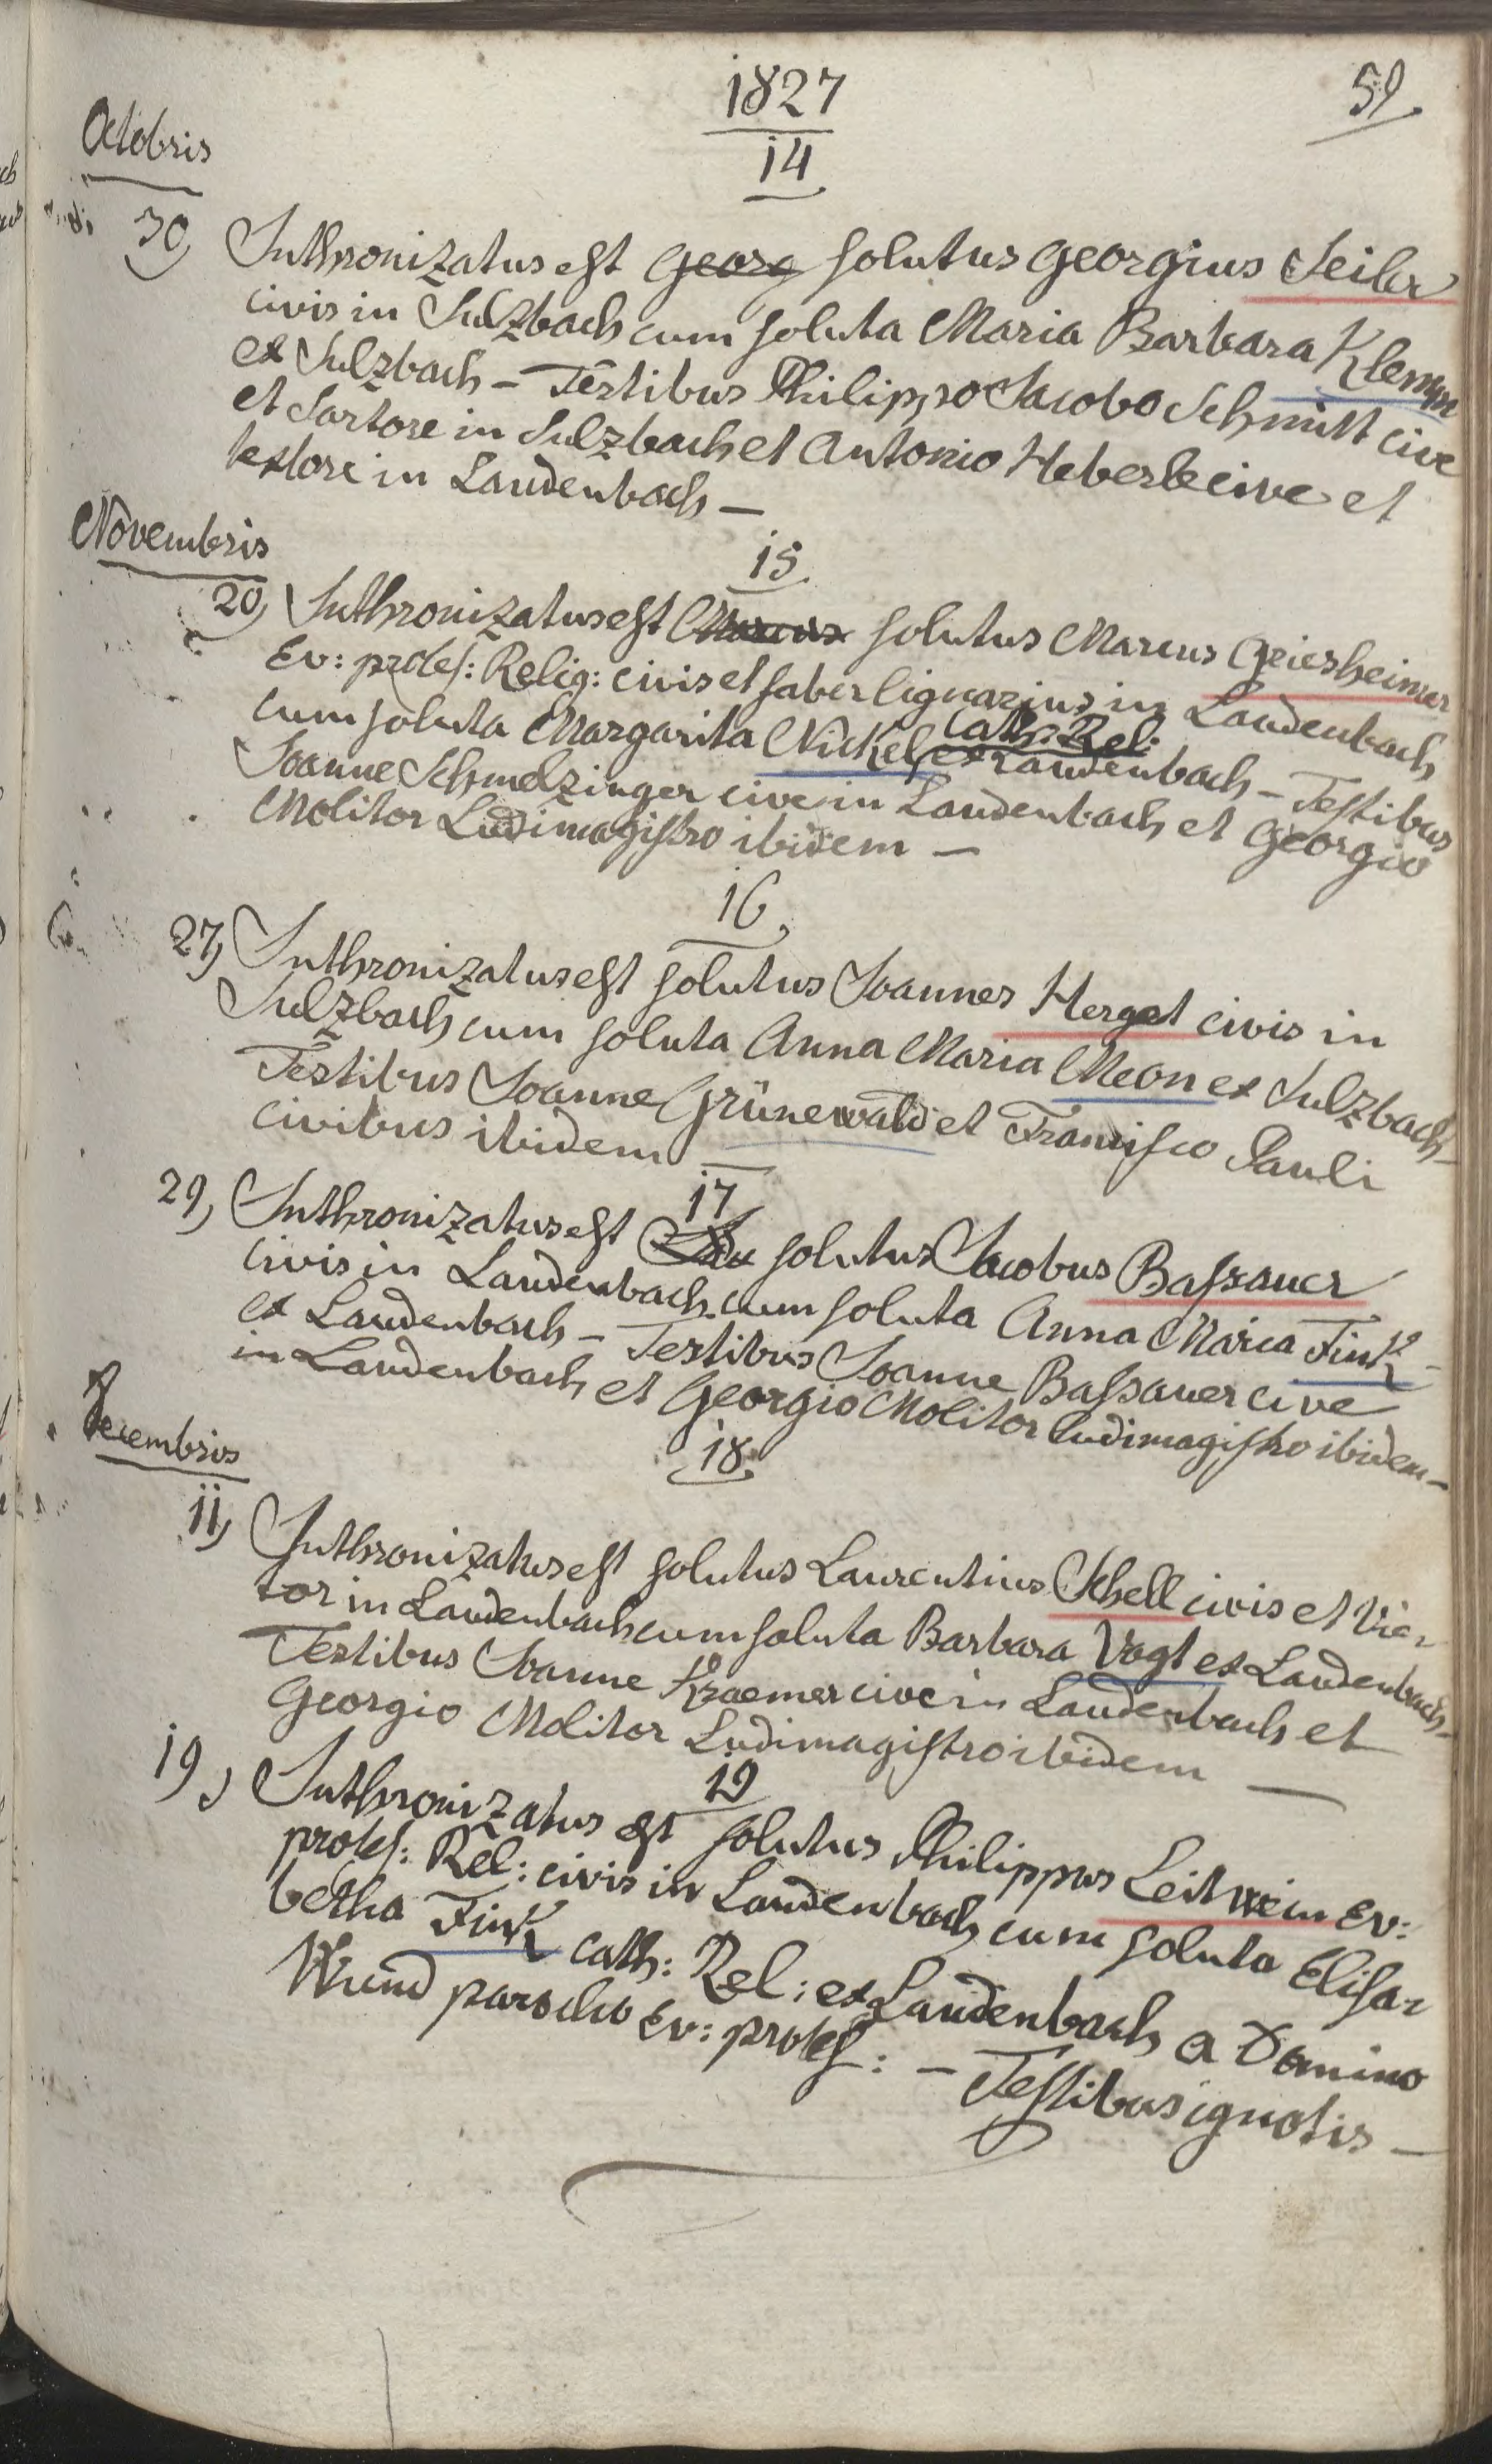 1827
59.
Octobris
14
30) Inthronizatus est Georg solutus Georgius Seiler
civis in Sulzbach cum soluta Maria Barbara Klemm
ex Sulzbach – Testibus Philippo Jacobo Schmitt cive
et Sartore in Sulzbach et Antonio Heberle cive et
textore in Laudenbach –
Novembris
15
20) Inthronizatus est Marcus solutus Marcus Griesheimer
Ev: protes: Relig: civis et faber lignarius in Laudenbach
Cath: Rel:
cum soluta Margarita Nickel ex Laudenbach – Testibus
Joanne Schmelzinger cive in Laudenbach et Georgio
Molitor Ludimagistro ibidem –
16
27) Inthronizatus est solutus Joannes Herget civis in
Sulzbach cum soluta Anna Maria Meon ex Sulzbach –
Testibus Joanne Grünewald et Francisco Pauli
civibus ibidem –
17
29) Inthronizatus est solutus Jacobus Bassauer
civis in Laudenbach cum soluta Anna Maria Fink –
ex Laudenbach – Testibus Joanne Bassauer cive
in Laudenbach et Georgio Molitor ludimagistro ibidem –
18
Decembris
11) Inthronizatus est solutus Laurentius Schell civis et Vie-
tor in Laudenbach cum soluta Barbara Vogt ex Laudenbach –
Testibus Joanne Kraemer cive in Laudenbach et
Georgio Molitor Ludimagistro ibidem –
19
19) Inthronizatus est solutus Philippus Leitwein Ev:
protes: Rel: civis in Laudenbach cum soluta Elisa-
betha Fink cath: Rel: ex Laudenbach a Domino
Wund parocho Ev: protes: – Testibus ignotis –